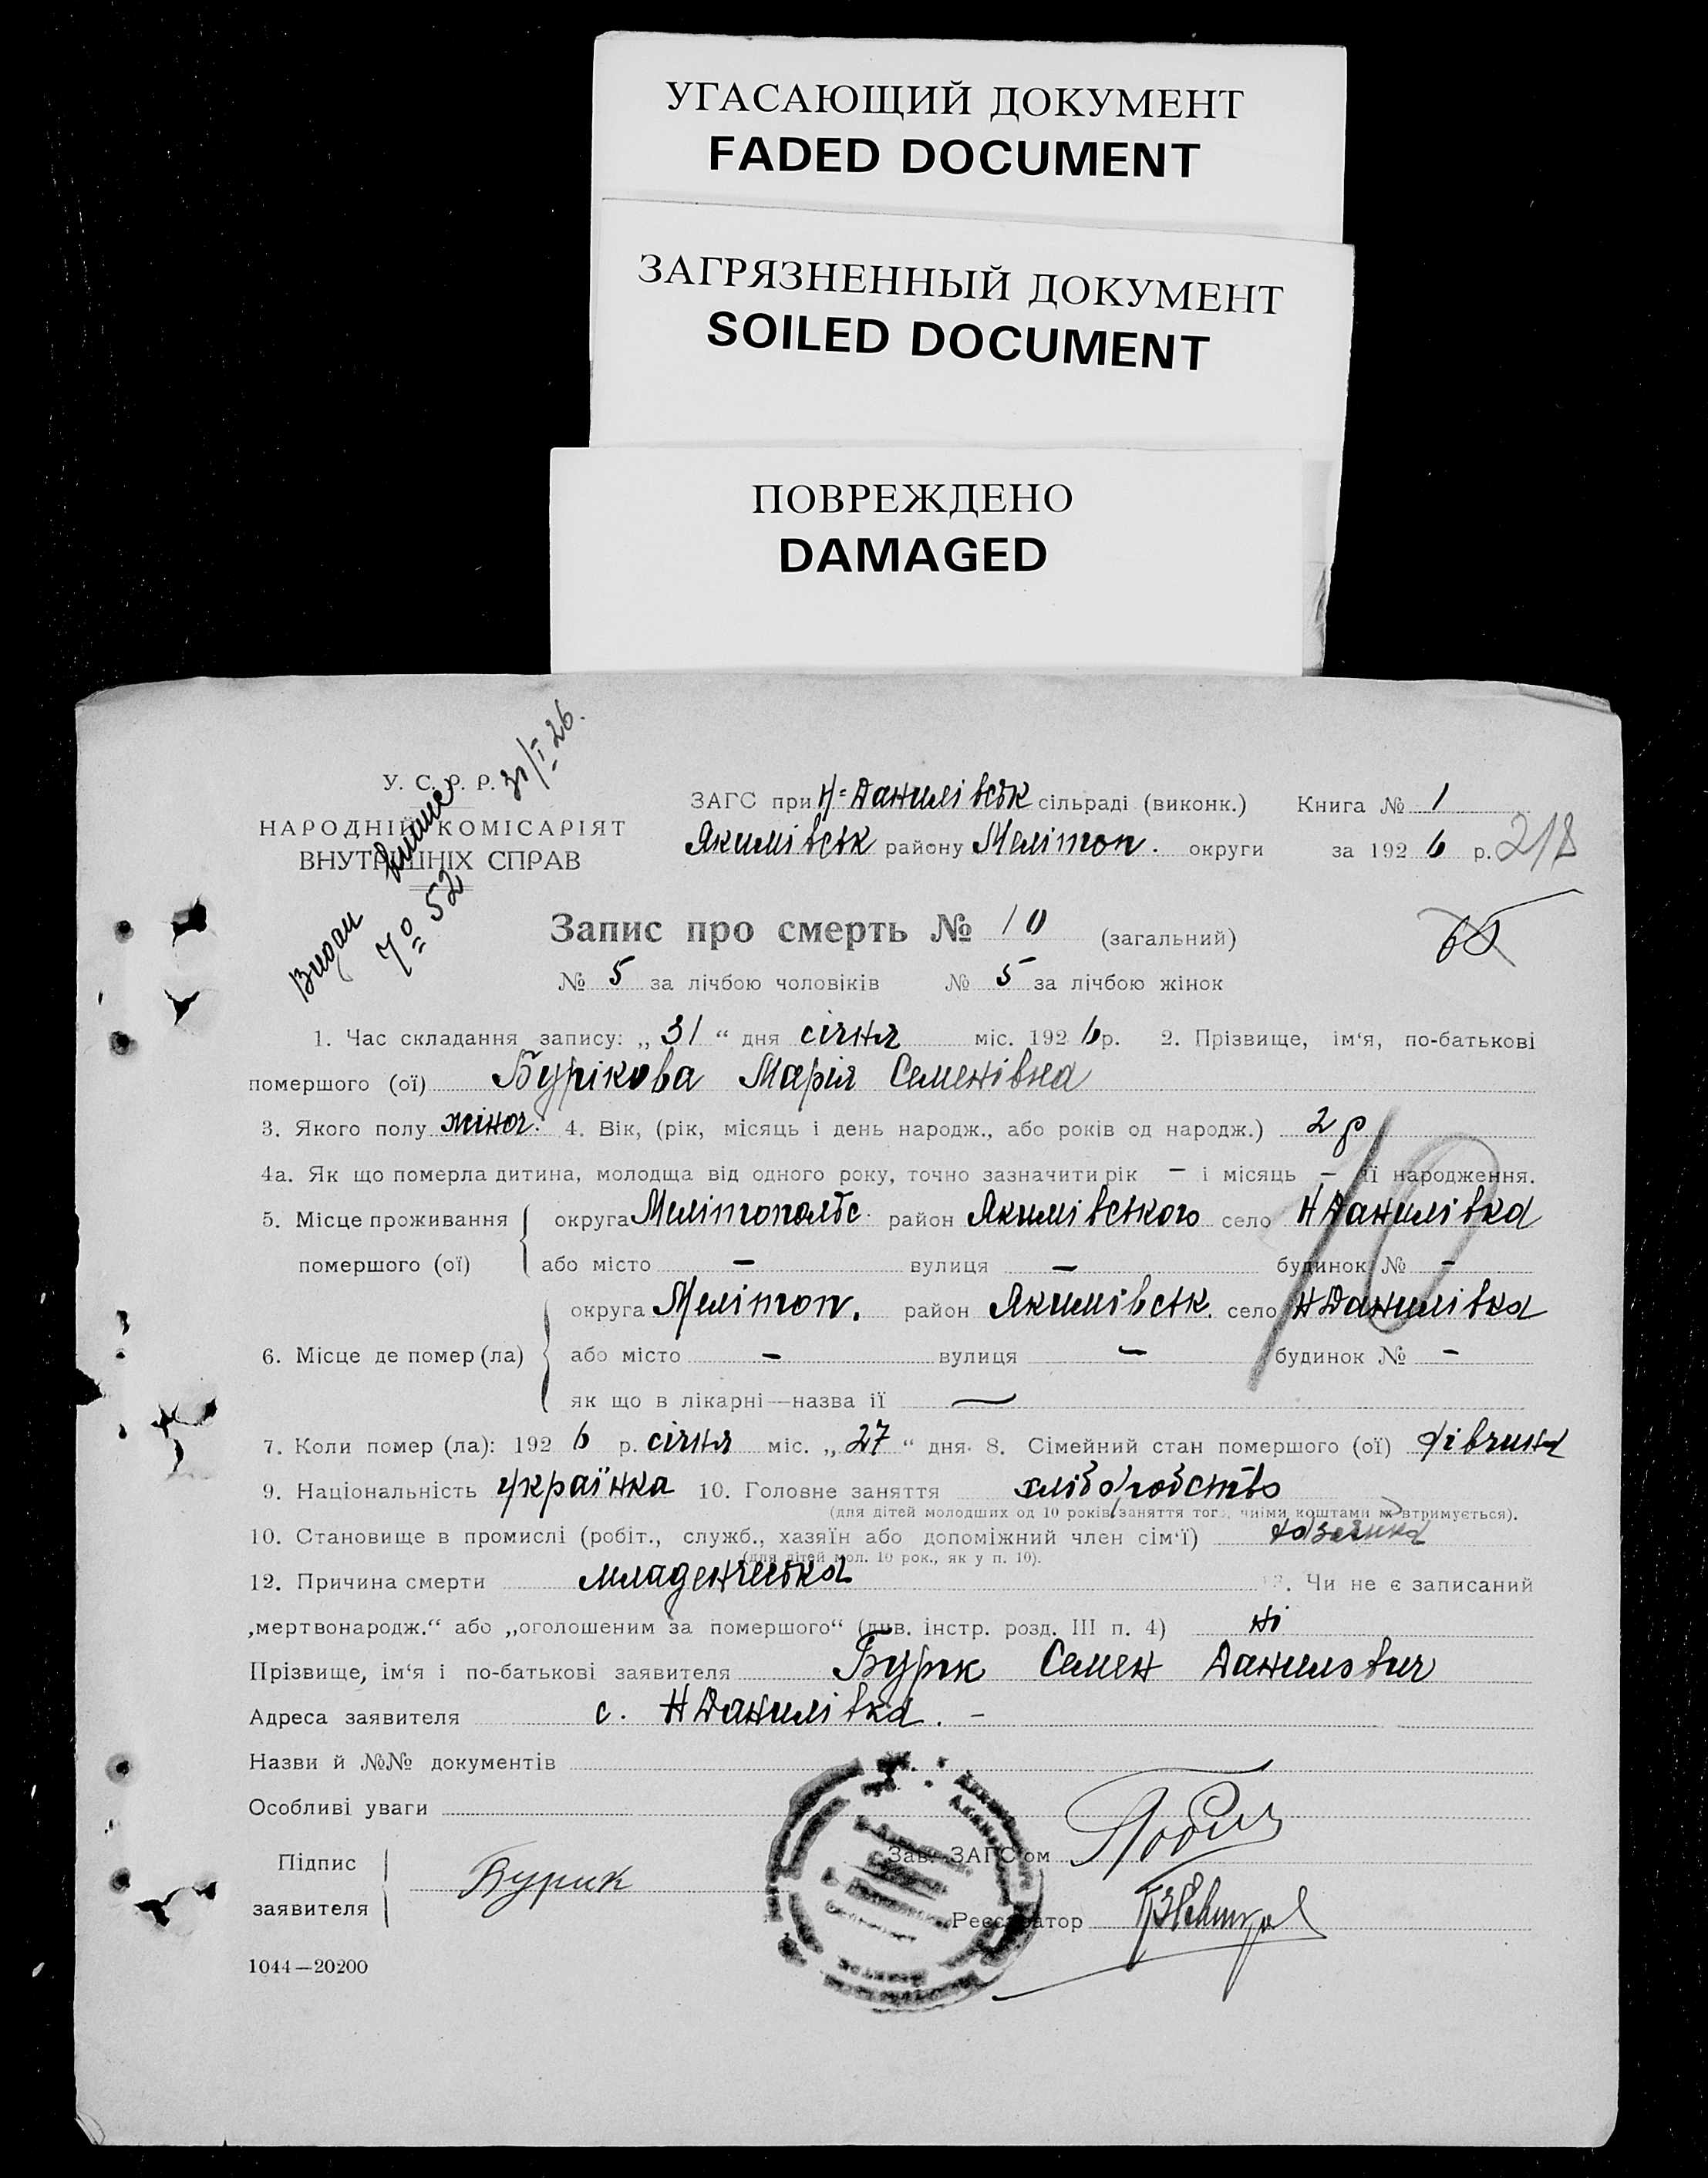 УГАСАЮЩИЙ ДОКУМЕНТ
FADED DOCUMENT
ЗАГРЯЗНЕННЫЙ ДОКУМЕНТ
SOILED DOCUMENT
ПОВРЕЖДЕНО
DAMAGED
31/I 26.
Видан
№ 52
У. С. Р. Р.
НАРОДНІЙ КОМІСАРІЯТ
ВНУТРІШНІХ СПРАВ
ЗАГС при Н-Данилівськ сільраді (виконк.) Книга № 1
Якимівськ району Меліточ. округи за 1926 р. 218
Запис про смерть № 10 (загальний)
65
№ 5 за лічбою чоловіків № 5 за лічбою жінок
1. Час складання запису: „ 31 “ дня січня міс. 1926 р. 2. Прізвище, ім‘я, по-батькові
помершого (ої) Бурікова Марія Семенівна
3. Якого полу жіноч. 4. Вік, (рік, місяць і день народж., або років од народж.) 2 р
4а. Як що померла дитина, молодща від одного року, точно зазначити рік – і місяць – її народження.
10
5. Місце проживання округа Мелітопольс. район Якимівського село НДанилівка
помершого (ої) або місто – вулиця – будинок № –
округа Мелітоп. район Якимівськ. село НДанилівка
6. Місце де помер (ла) або місто – вулиця – будинок № –
як що в лікарні—назва її —
7. Коли помер (ла): 1926 р. січня міс. „ 27 “ дня. 8. Сімейний стан помершого (ої) дівчина
9. Національність українка 10. Головне заняття хліборобство
(для дітей молодших од 10 років заняття того, чиїми коштами їх втримується).
10. Становище в промислі (робіт., служб., хазяїн або допоміжний член сім‘ї) хазяїка
(для дітей мол. 10 рок., як у п. 10).
12. Причина смерти младенчеська . Чи не є записаний
„мертвонародж.“ або „оголошеним за помершого“ (див. інстр. розд. III п. 4) ні
Прізвище, ім‘я і по-батькові заявителя Бурік Семен Данилович
Адреса заявителя с. НДанилівка. –
Назви й №№ документів
Особливі уваги
Підпис
заявителя Бурик
Зав. ЗАГС‘ом
Реєстратор
1044—20200